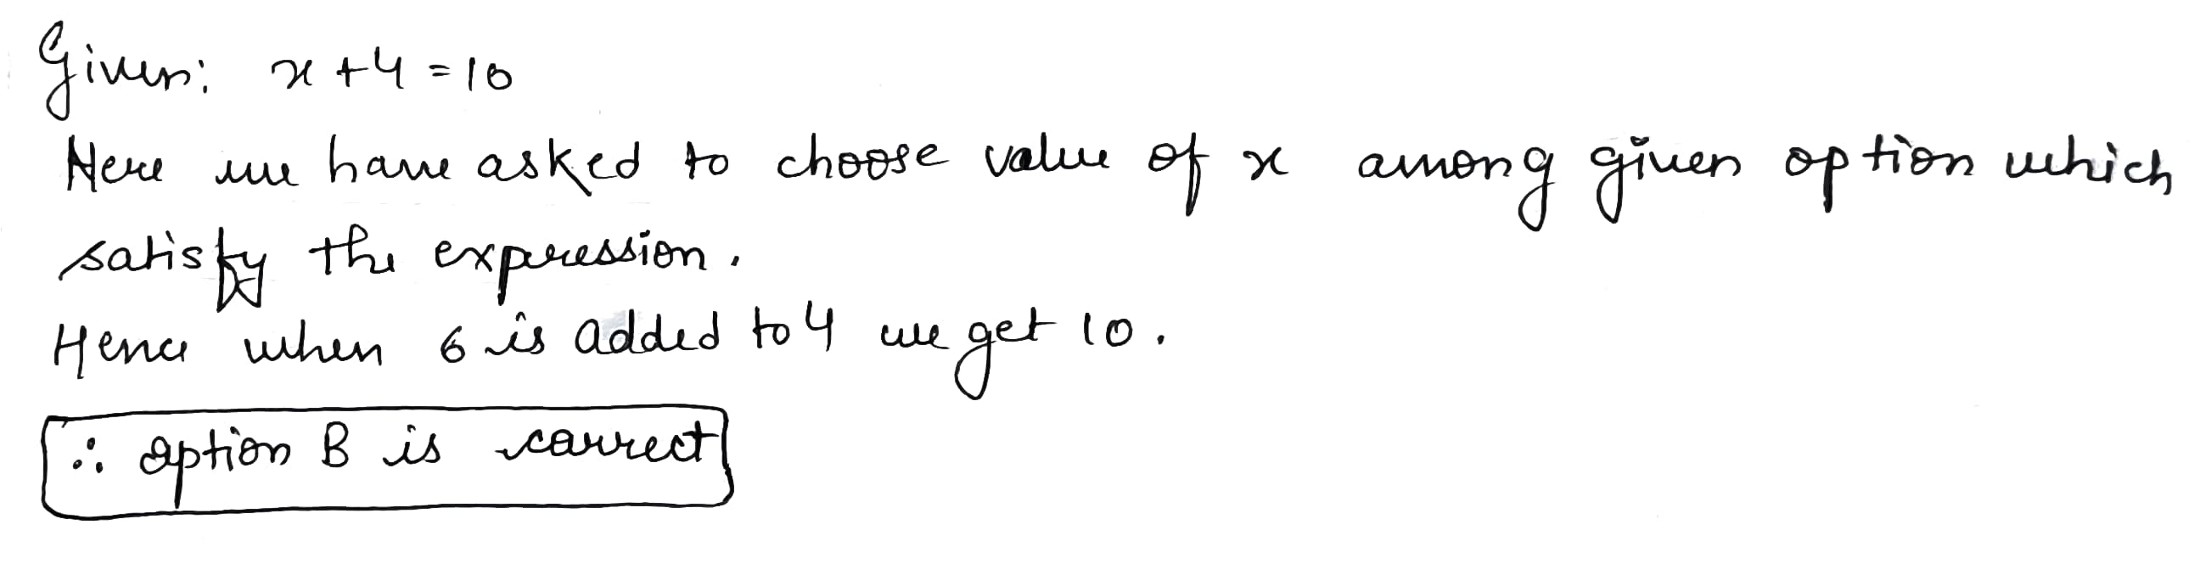 Given: x + 4 = 10
Here we have asked to choose value of x among given option which
satisfy the expression.
Hence when 6 is added to 4 we get 10.
∴ option B is correct